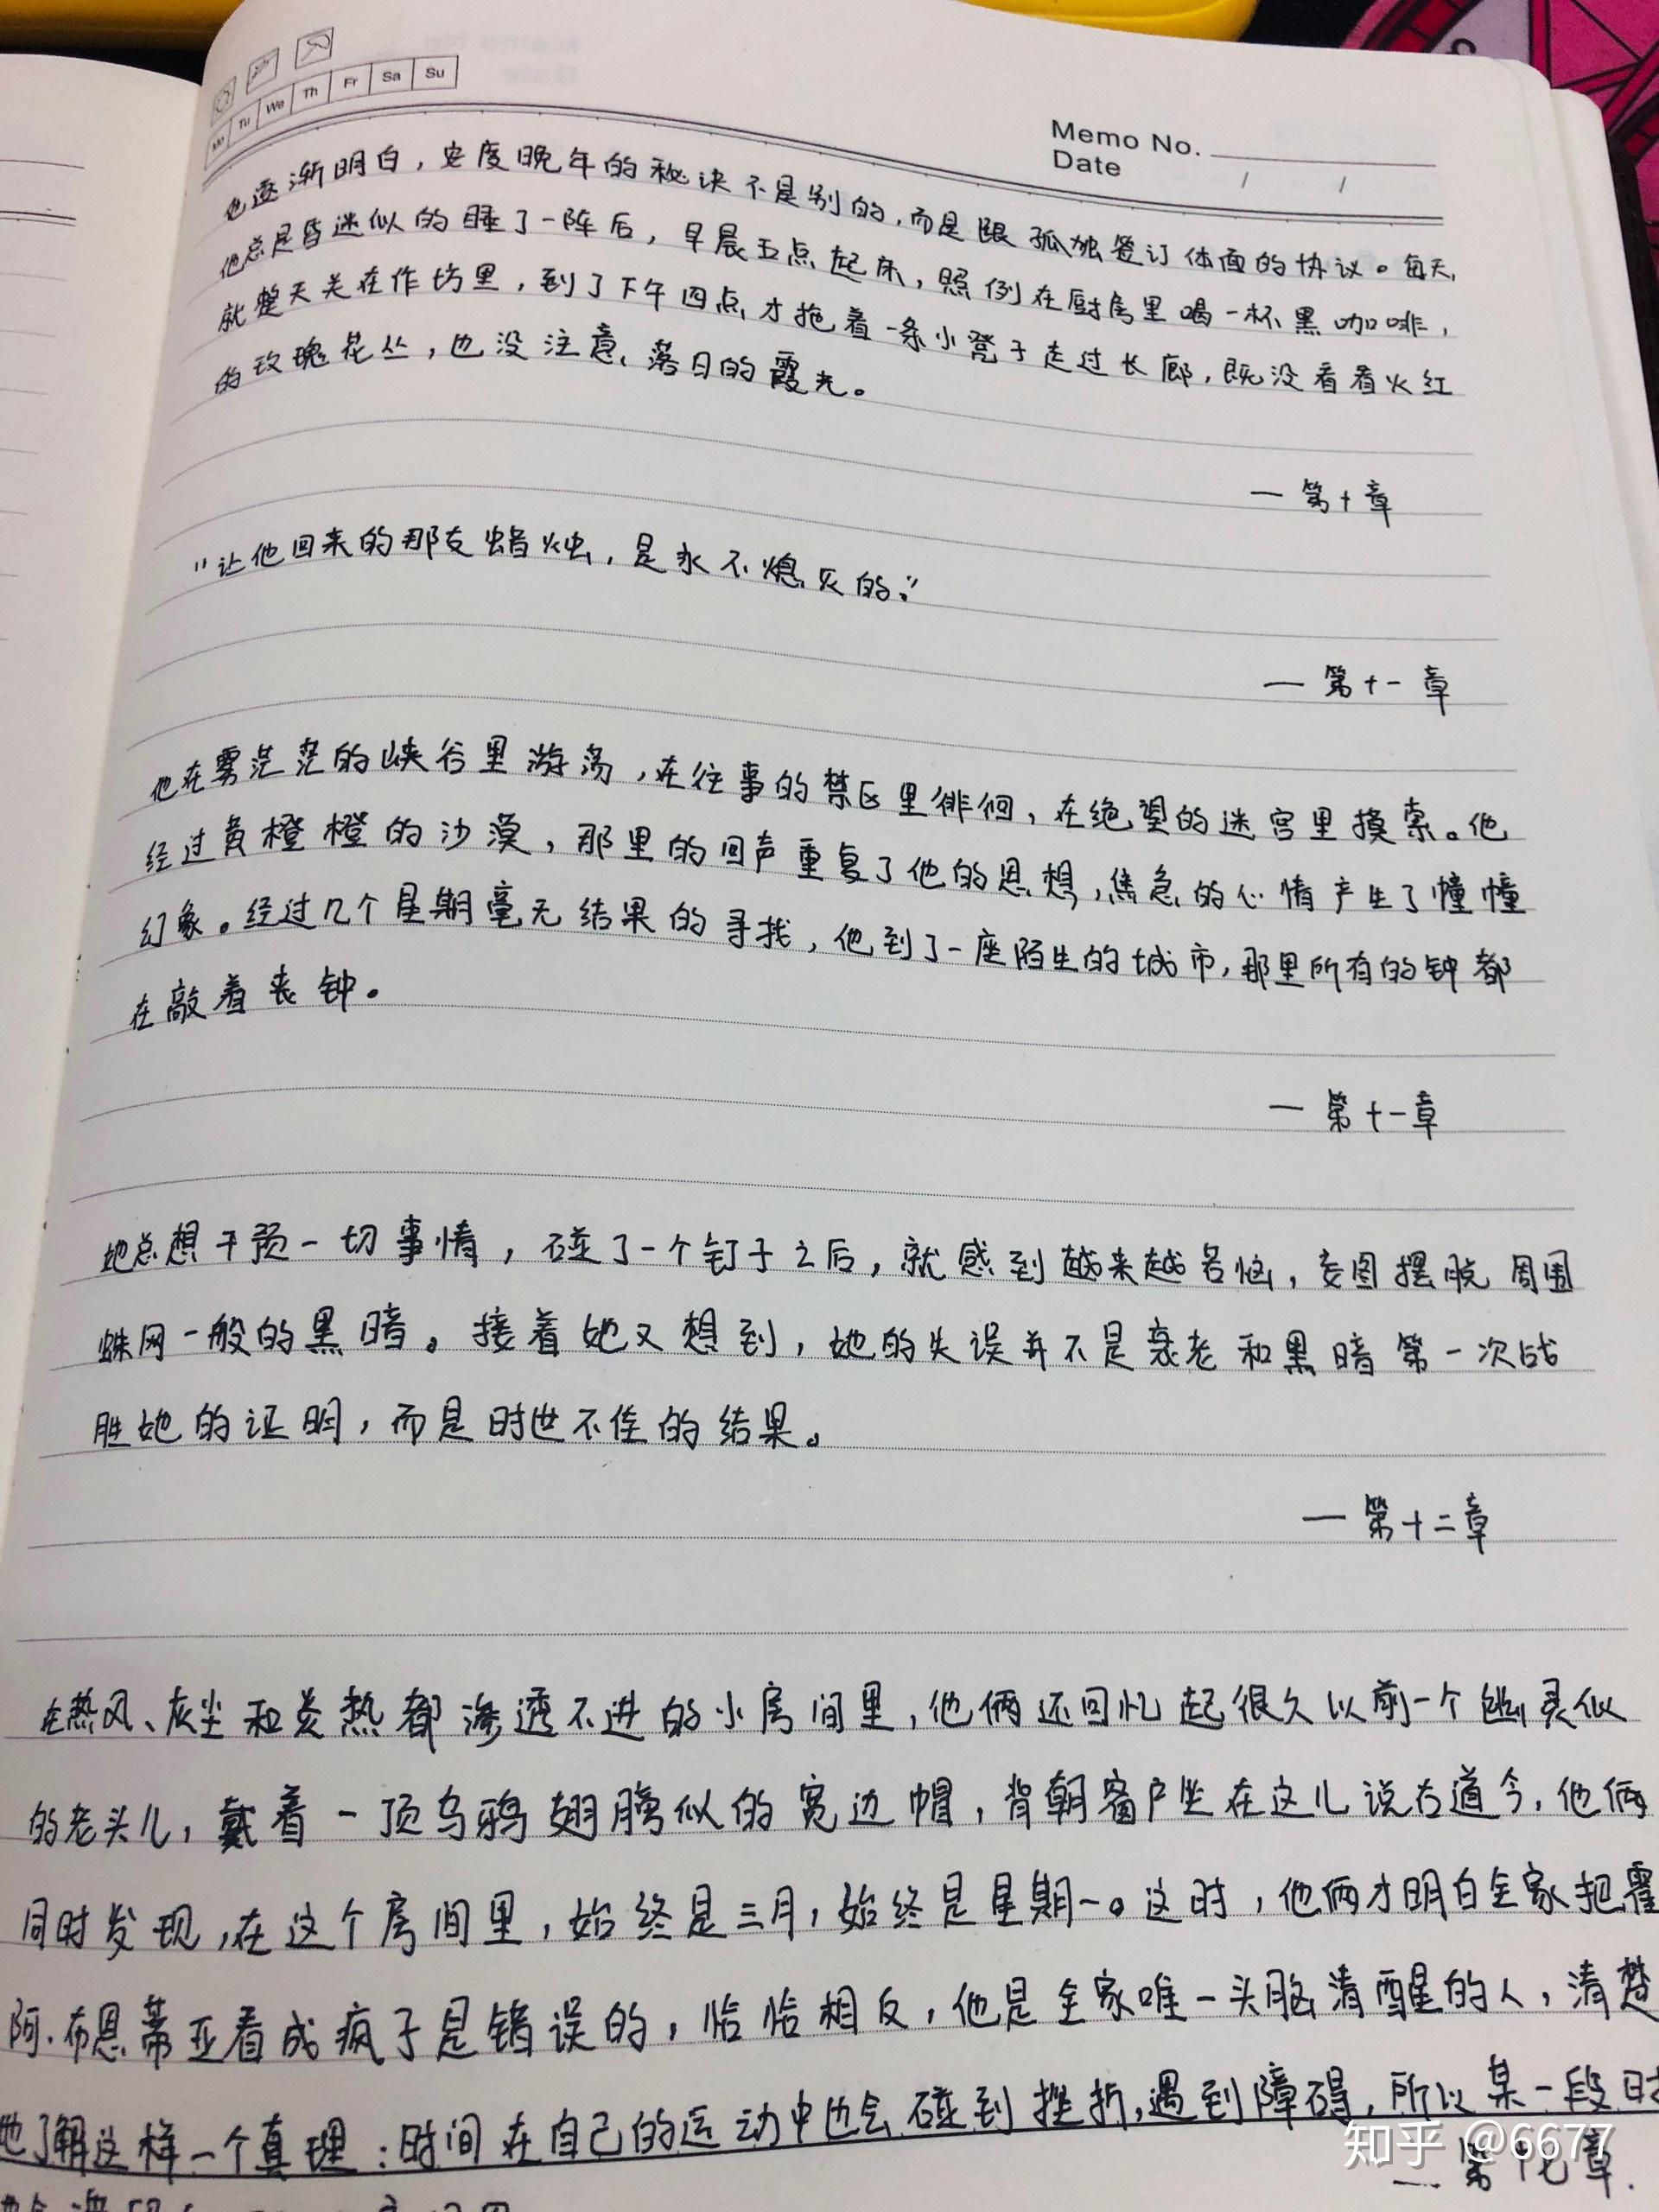 Mo Tu We Th Fr Sa Su
Memo No.
Date / /
他逐渐明白，安度晚年的秘诀不是别的，而是跟孤独签订体面的协议。每天，
他总是昏迷似的睡了一阵后，早晨五点起床，照例在厨房里喝一杯黑咖啡，
就整天关在作坊里，到了下午四点才拖着一条小凳子走过长廊，既没看着火红
的玫瑰花丛，也没注意落日的霞光。
— 第十章
"让他回来的那支蜡烛，是永不熄灭的。"
— 第十一章
他在雾茫茫的峡谷里游荡，在往事的禁区里徘徊，在绝望的迷宫里摸索。他
经过黄橙橙的沙漠，那里的回声重复了他的思想，焦急的心情产生了幢幢
幻象。经过几个星期毫无结果的寻找，他到了一座陌生的城市，那里所有的钟都
在敲着丧钟。
— 第十一章
她总想干预一切事情，碰了一个钉子之后，就感到越来越苦恼，妄图摆脱周围
蛛网一般的黑暗。接着她又想到，她的失误并不是衰老和黑暗第一次战
胜她的证明，而是时世不佳的结果。
— 第十二章
在热风、灰尘和炎热都渗透不进的小房间里，他俩还回忆起很久以前一个幽灵似
的老头儿，戴着一顶乌鸦翅膀似的宽边帽，背朝窗户坐在这儿说古道今，他俩
同时发现，在这个房间里，始终是三月，始终是星期一。这时，他俩才明白全家把霍
阿·布恩蒂亚看成疯子是错误的，恰恰相反，他是全家唯一头脑清醒的人，清楚
地了解这样一个真理：时间在自己的运动中也会碰到挫折，遇到障碍，所以某一段时
— 第十七章.
知乎 @6677